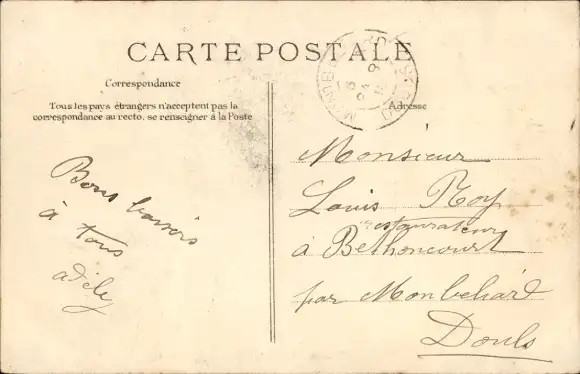 CARTE POSTALE
Correspondance
Tous les pays étrangers n'acceptent pas la
correspondance au recto, se renseigner à la Poste
Adresse
Bons baisers
à tous
adèle
Monsieur
Louis Roy
restaurateur
à Bethoncourt
par Monbeliard
Doubs